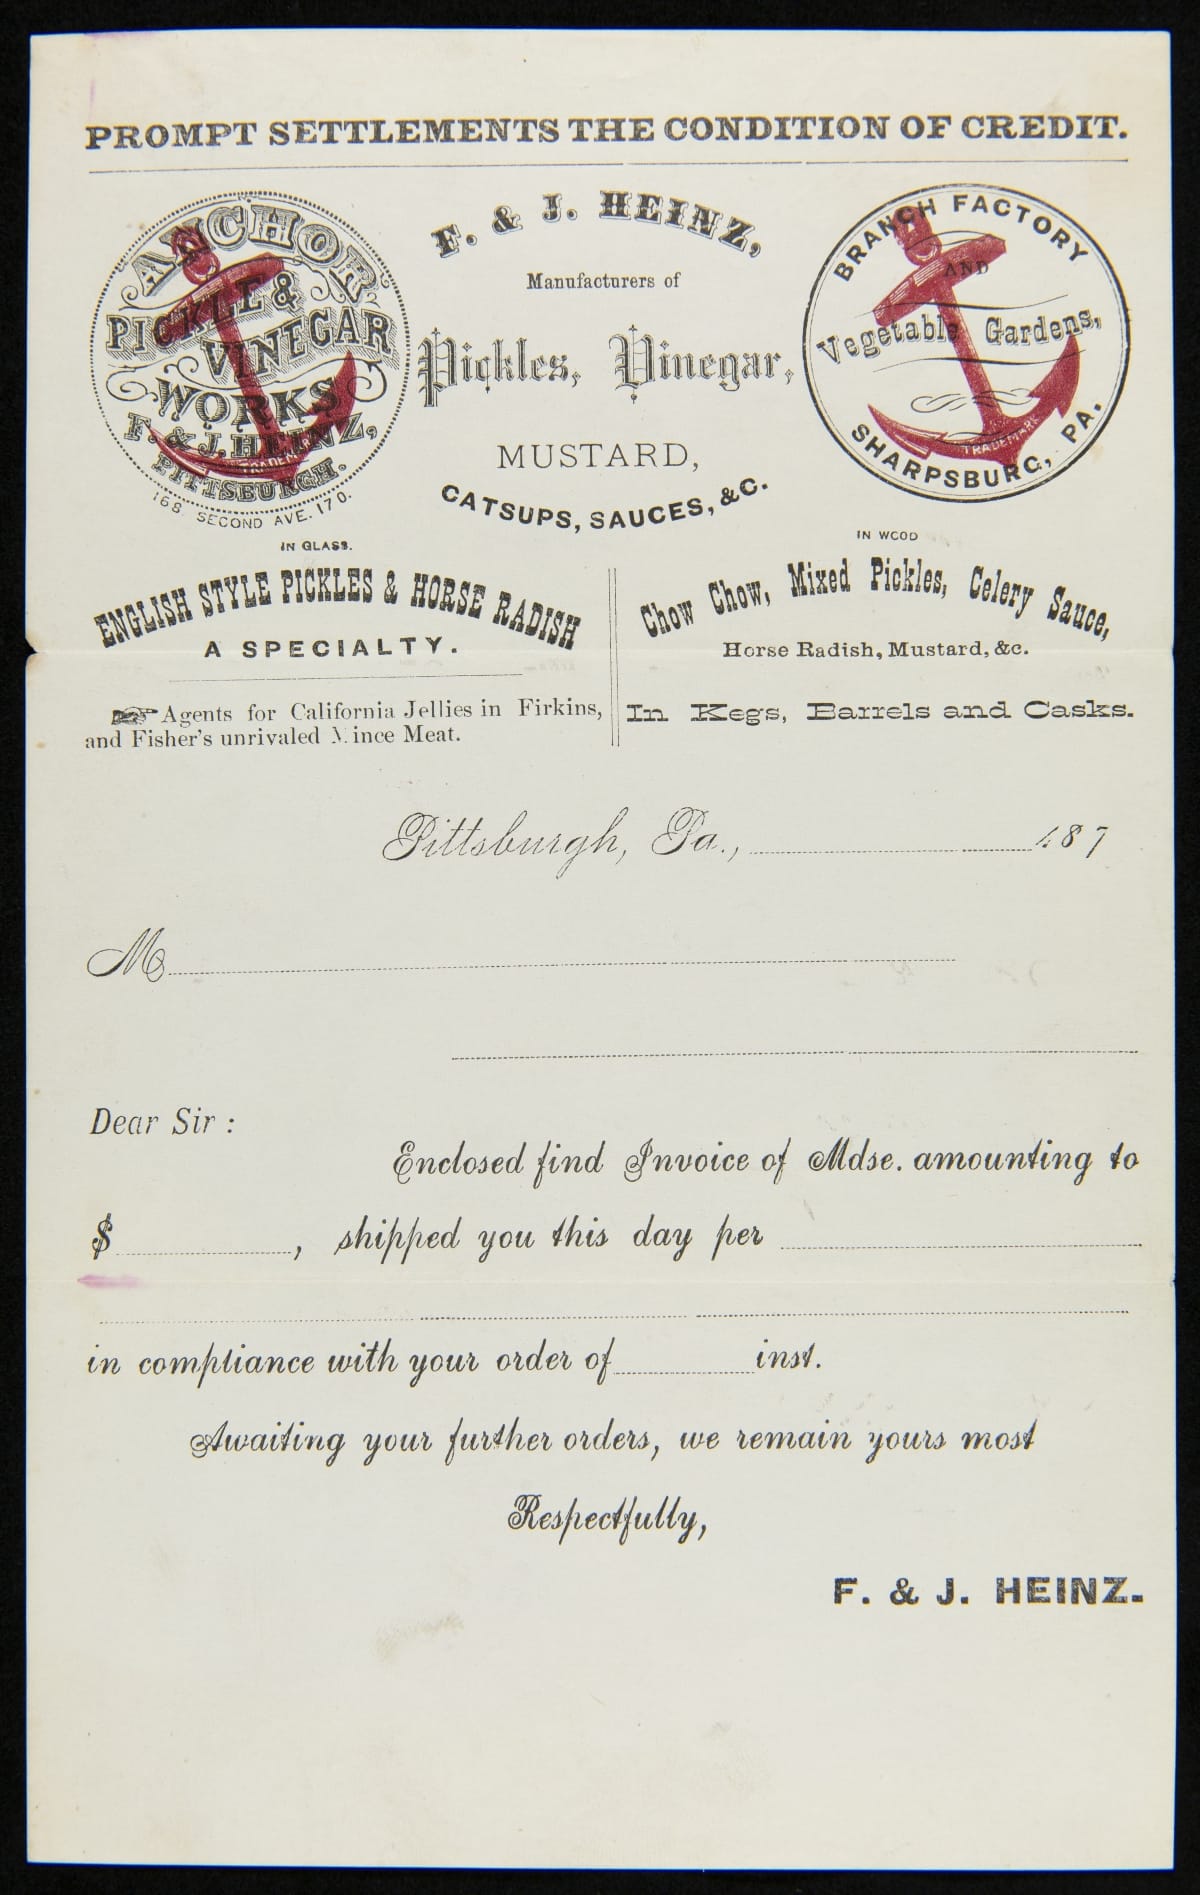 PROMPT SETTLEMENTS THE CONDITION OF CREDIT.
ANCHOR
PICKLE &
VINEGAR
WORKS
F. & J. HEINZ,
TRADEMARK
PITTSBURGH.
168. SECOND AVE. 170.
F. & J. HEINZ,
Manufacturers of
Pickles, Vinegar,
MUSTARD,
CATSUPS, SAUCES, &C.
BRANCH FACTORY
AND
Vegetable Gardens,
TRADEMARK
SHARPSBURG, PA.
IN GLASS.
ENGLISH STYLE PICKLES & HORSE RADISH
A SPECIALTY.
☞ Agents for California Jellies in Firkins,
and Fisher's unrivaled Mince Meat.
IN WOOD
Chow Chow, Mixed Pickles, Celery Sauce,
Horse Radish, Mustard, &c.
In Kegs, Barrels and Casks.
Pittsburgh, Pa., 187
M
Dear Sir :
Enclosed find Invoice of Mdse. amounting to
$ , shipped you this day per
in compliance with your order of inst.
Awaiting your further orders, we remain yours most
Respectfully,
F. & J. HEINZ.